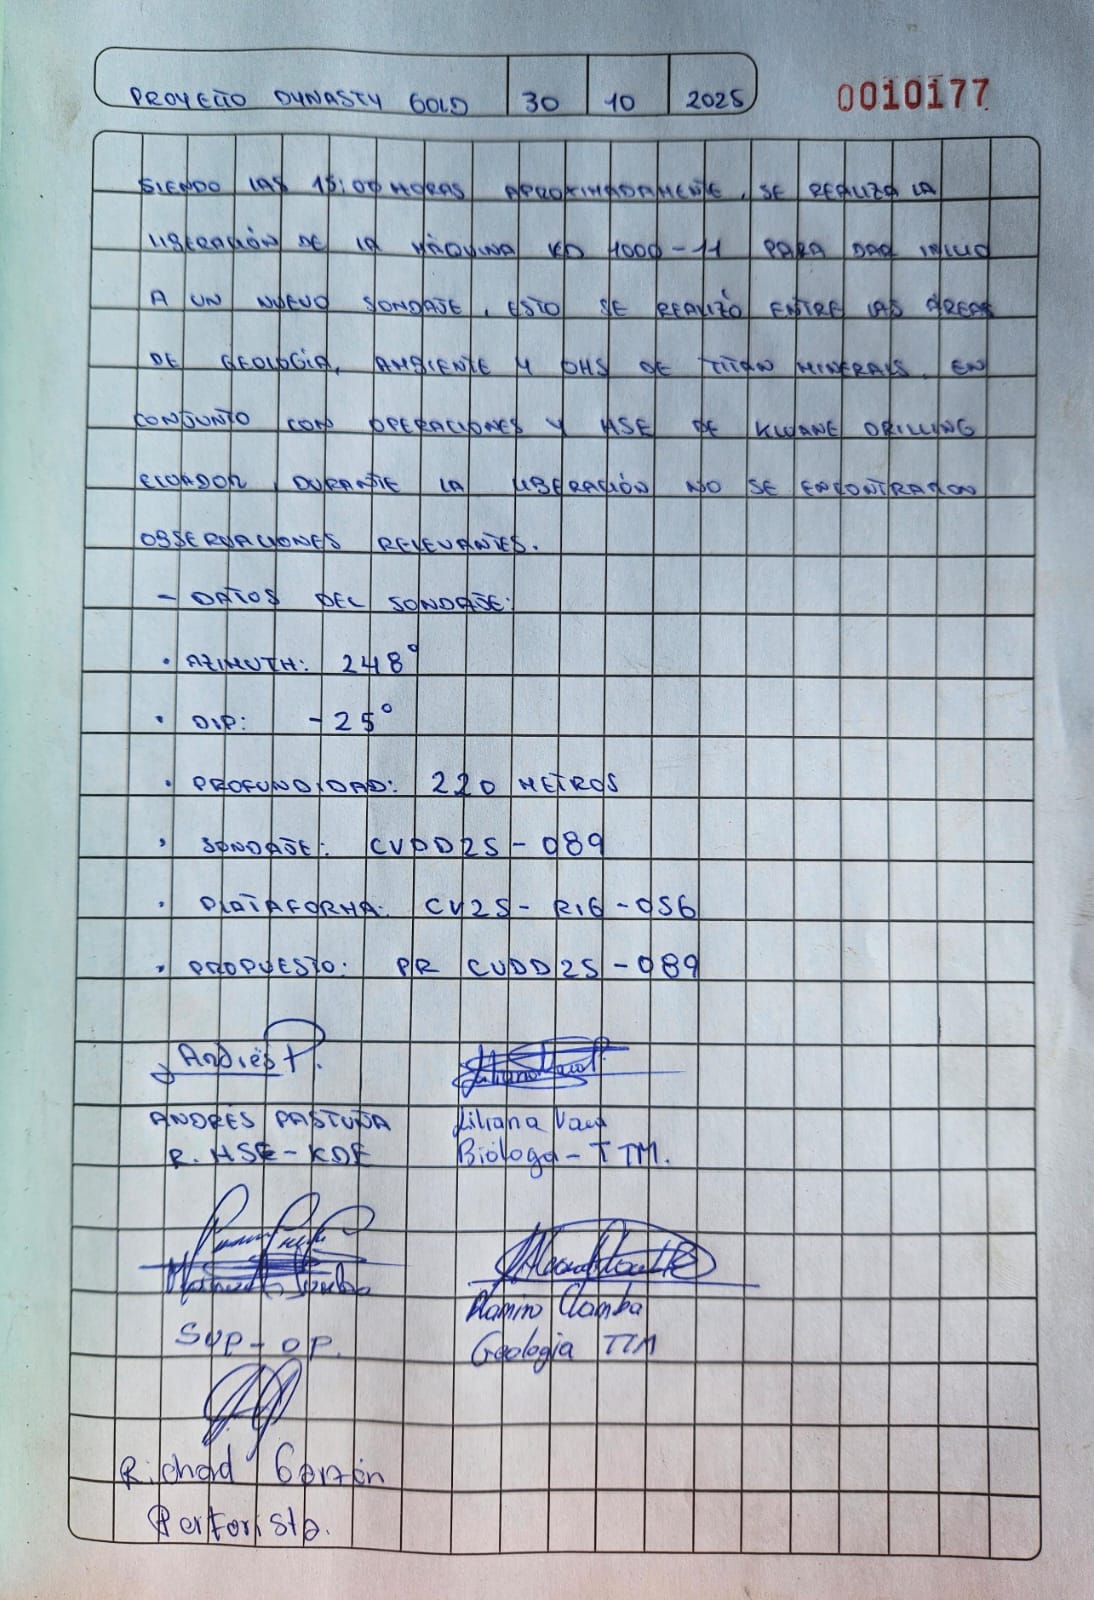 PROYECTO DYNASTY GOLD 30 10 2025 0010177
SIENDO LAS 15:00 HORAS APROXIMADAMENTE, SE REALIZA LA
LIBERACIÓN DE LA MÁQUINA KD 1000-11 PARA DAR INICIO
A UN NUEVO SONDAJE, ESTO SE REALIZÓ ENTRE LAS ÁREAS
DE GEOLOGÍA, AMBIENTE Y OHS DE TITAN MINERALS, EN
CONJUNTO CON OPERACIONES Y HSE DE KLUANE DRILLING
ECUADOR, DURANTE LA LIBERACIÓN NO SE ENCONTRARON
OBSERVACIONES RELEVANTES.
- DATOS DEL SONDAJE:
• AZIMUTH: 248°
• DIP: -25°
• PROFUNDIDAD: 220 METROS
• SONDAJE: CVDD25-089
• PLATAFORMA: CV25-RIG-056
• PROPUESTO: PR CVDD25-089
Andrés P.
ANDRÉS PASTUÑA Liliana
R. HSE-KDE Bióloga-TTM.
Ramiro Clamba
SUP-OP. Geologia TTM
Richard Garzón
Perforista.